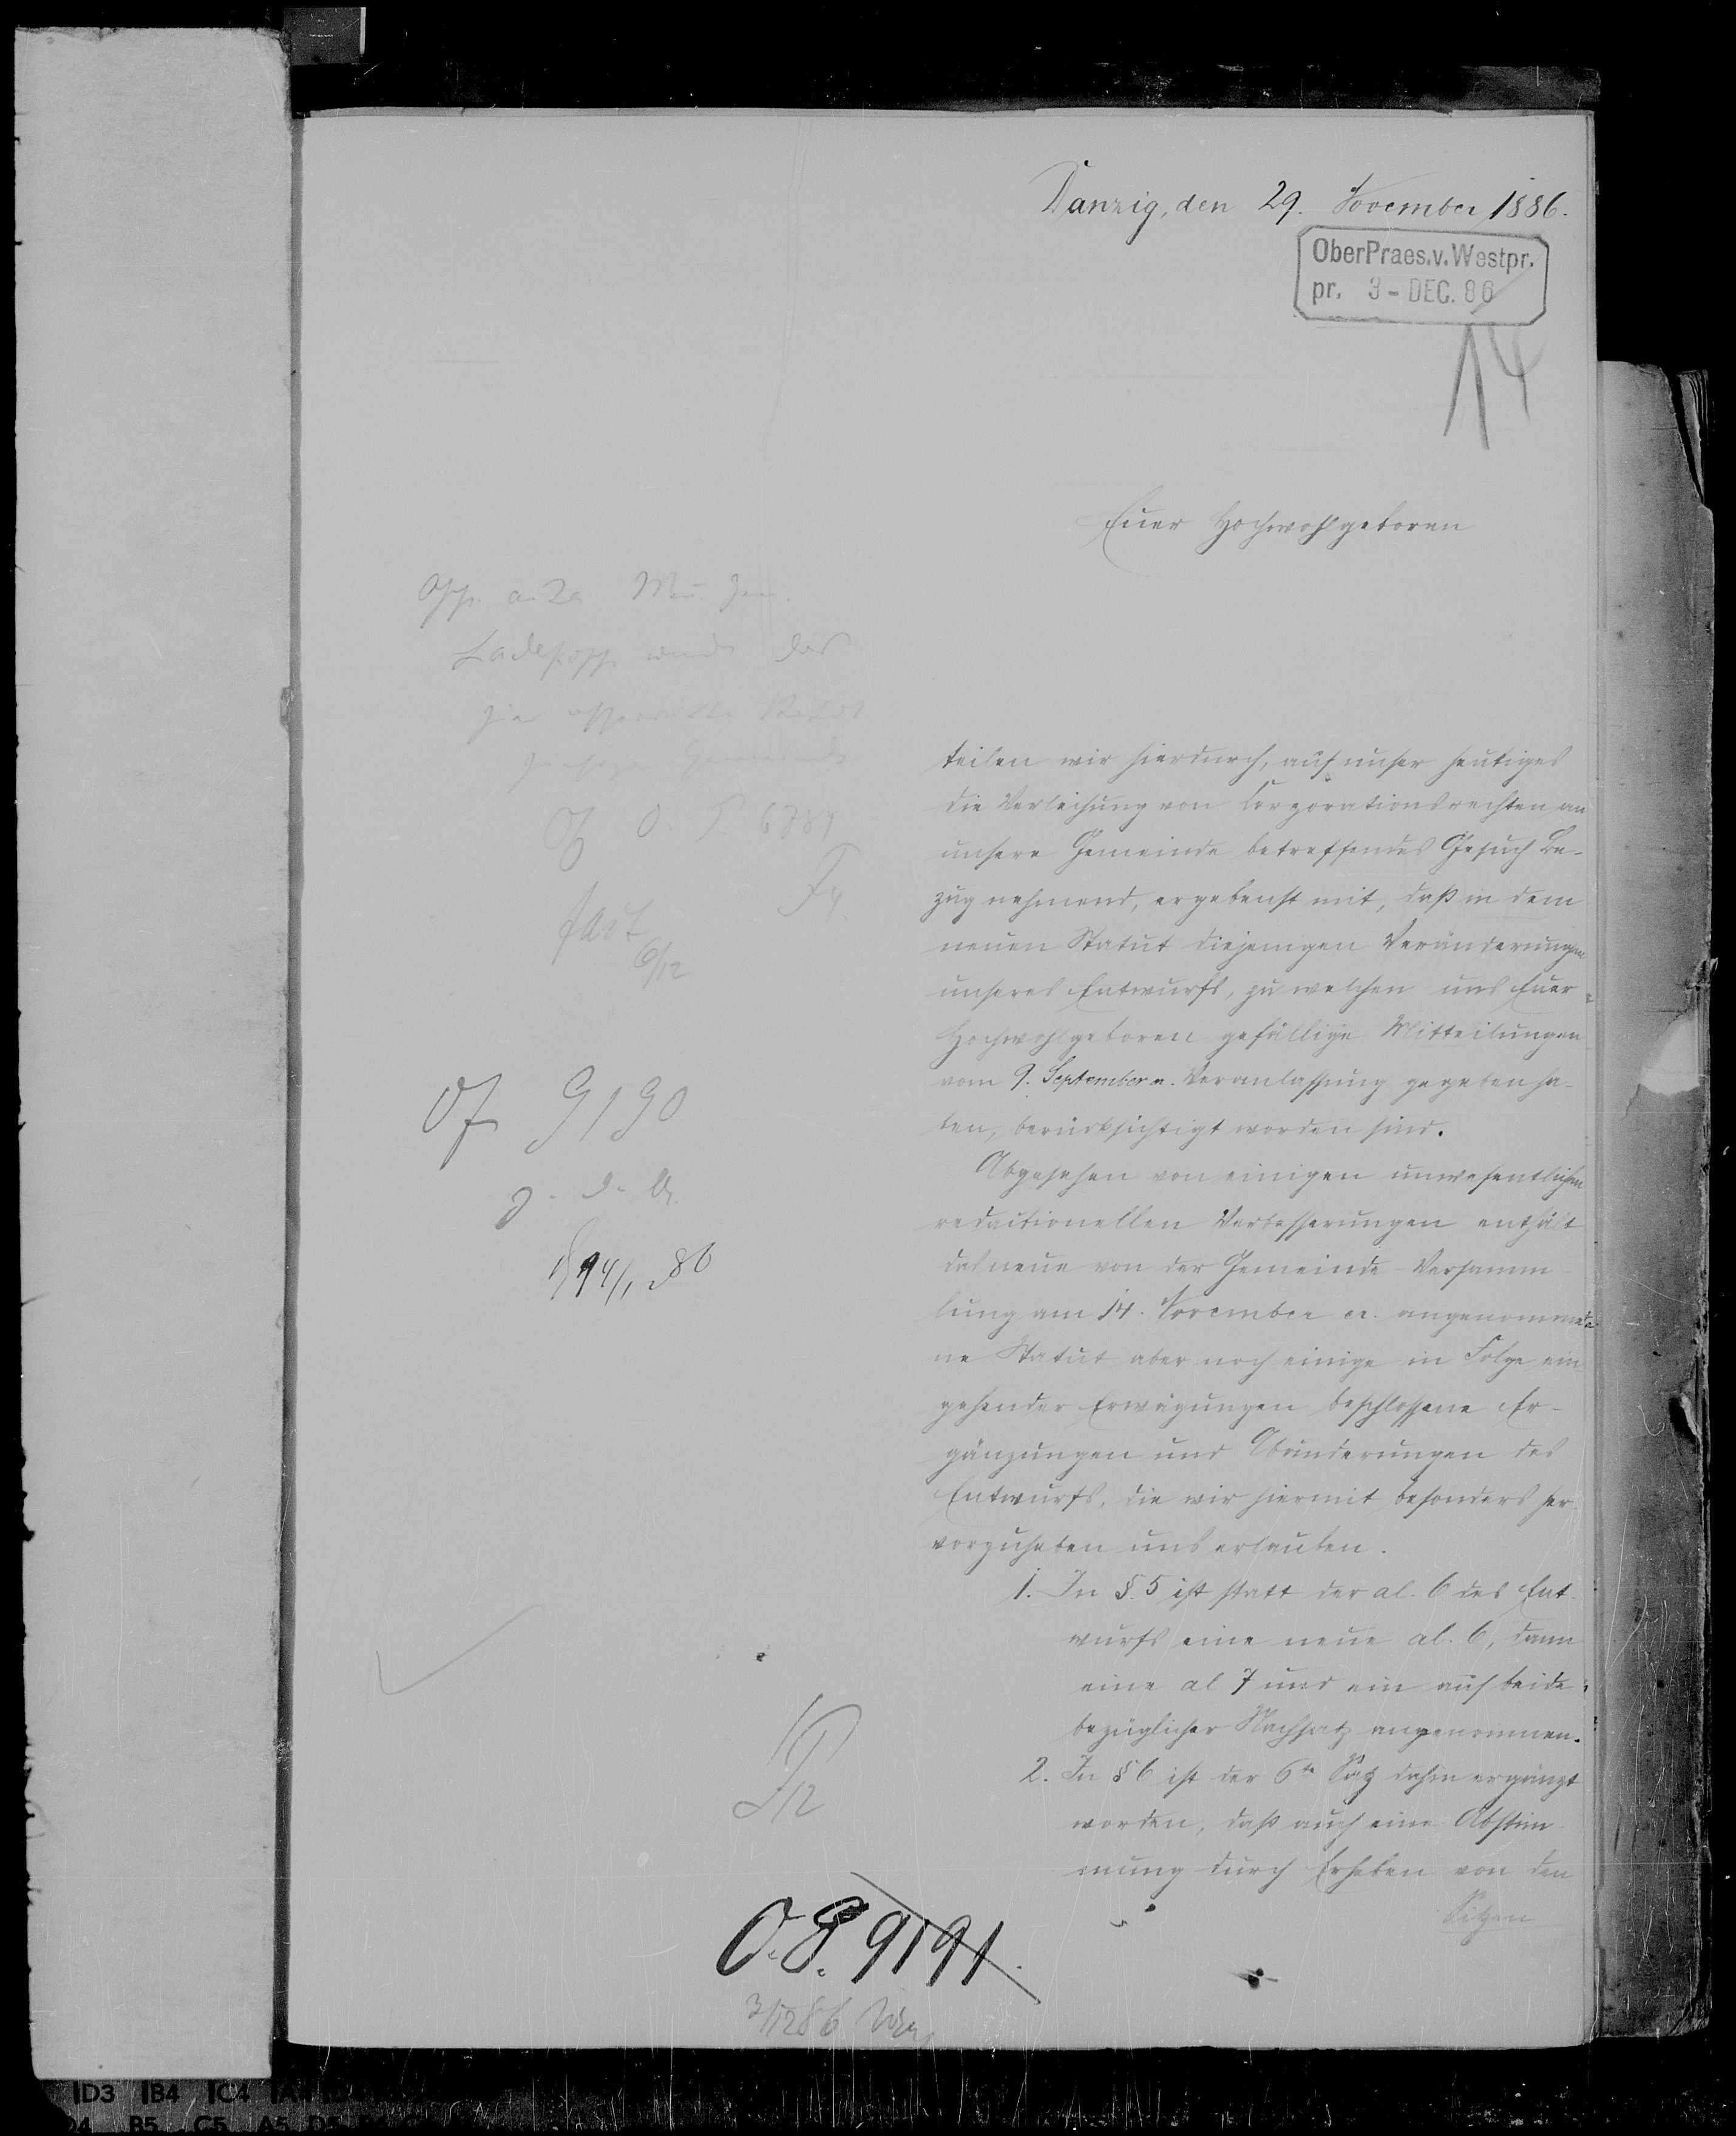 Danzig, den 29. November 1886.
OberPraes.v.Westpr.
pr. 3-DEC.86
14
Euer Hochwohlgeboren
teilen wir hierdurch, auf unser heutiges
die Verleihung von Corporationsrechten an
unsere Gemeinde betreffendes Gesuch Be-
zug nehmend, ergebenst mit, daß in dem
neuen Statut diejenigen Veränderungen
unseres Entwurfs, zu welchen uns Euer
Hochwohlgeboren gefällige Mitteilungen
vom 9. September a. Veranlassung gegeben ha-
ben, berücksichtigt worden sind.
Abgesehen von einigen unwesentlichen
redactionellen Verbesserungen enthält
das neue von der Gemeinde-Versamm-
lung am 14. November cr. angenomme-
ne Statut aber noch einige in Folge ein
gehender Erwägungen beschlossene Er-
gänzungen und Abänderungen des
Entwurfs, die wir hiermit besonders her
vorzuheben uns erlauben.
1. In §. 5 ist statt der al. 6 des Ent-
wurfs eine neue al. 6, dann
eine al 7 und ein auf beide
bezüglicher Nachsatz angenommen.
2. In § 6 ist der 6te Satz dahin ergänzt
worden, daß auch eine Abstim
mung durch Erheben von den
Sitzen
Ladekopp
O. P. 6784
6/12
9190
O.P. 9191.
3/12 86